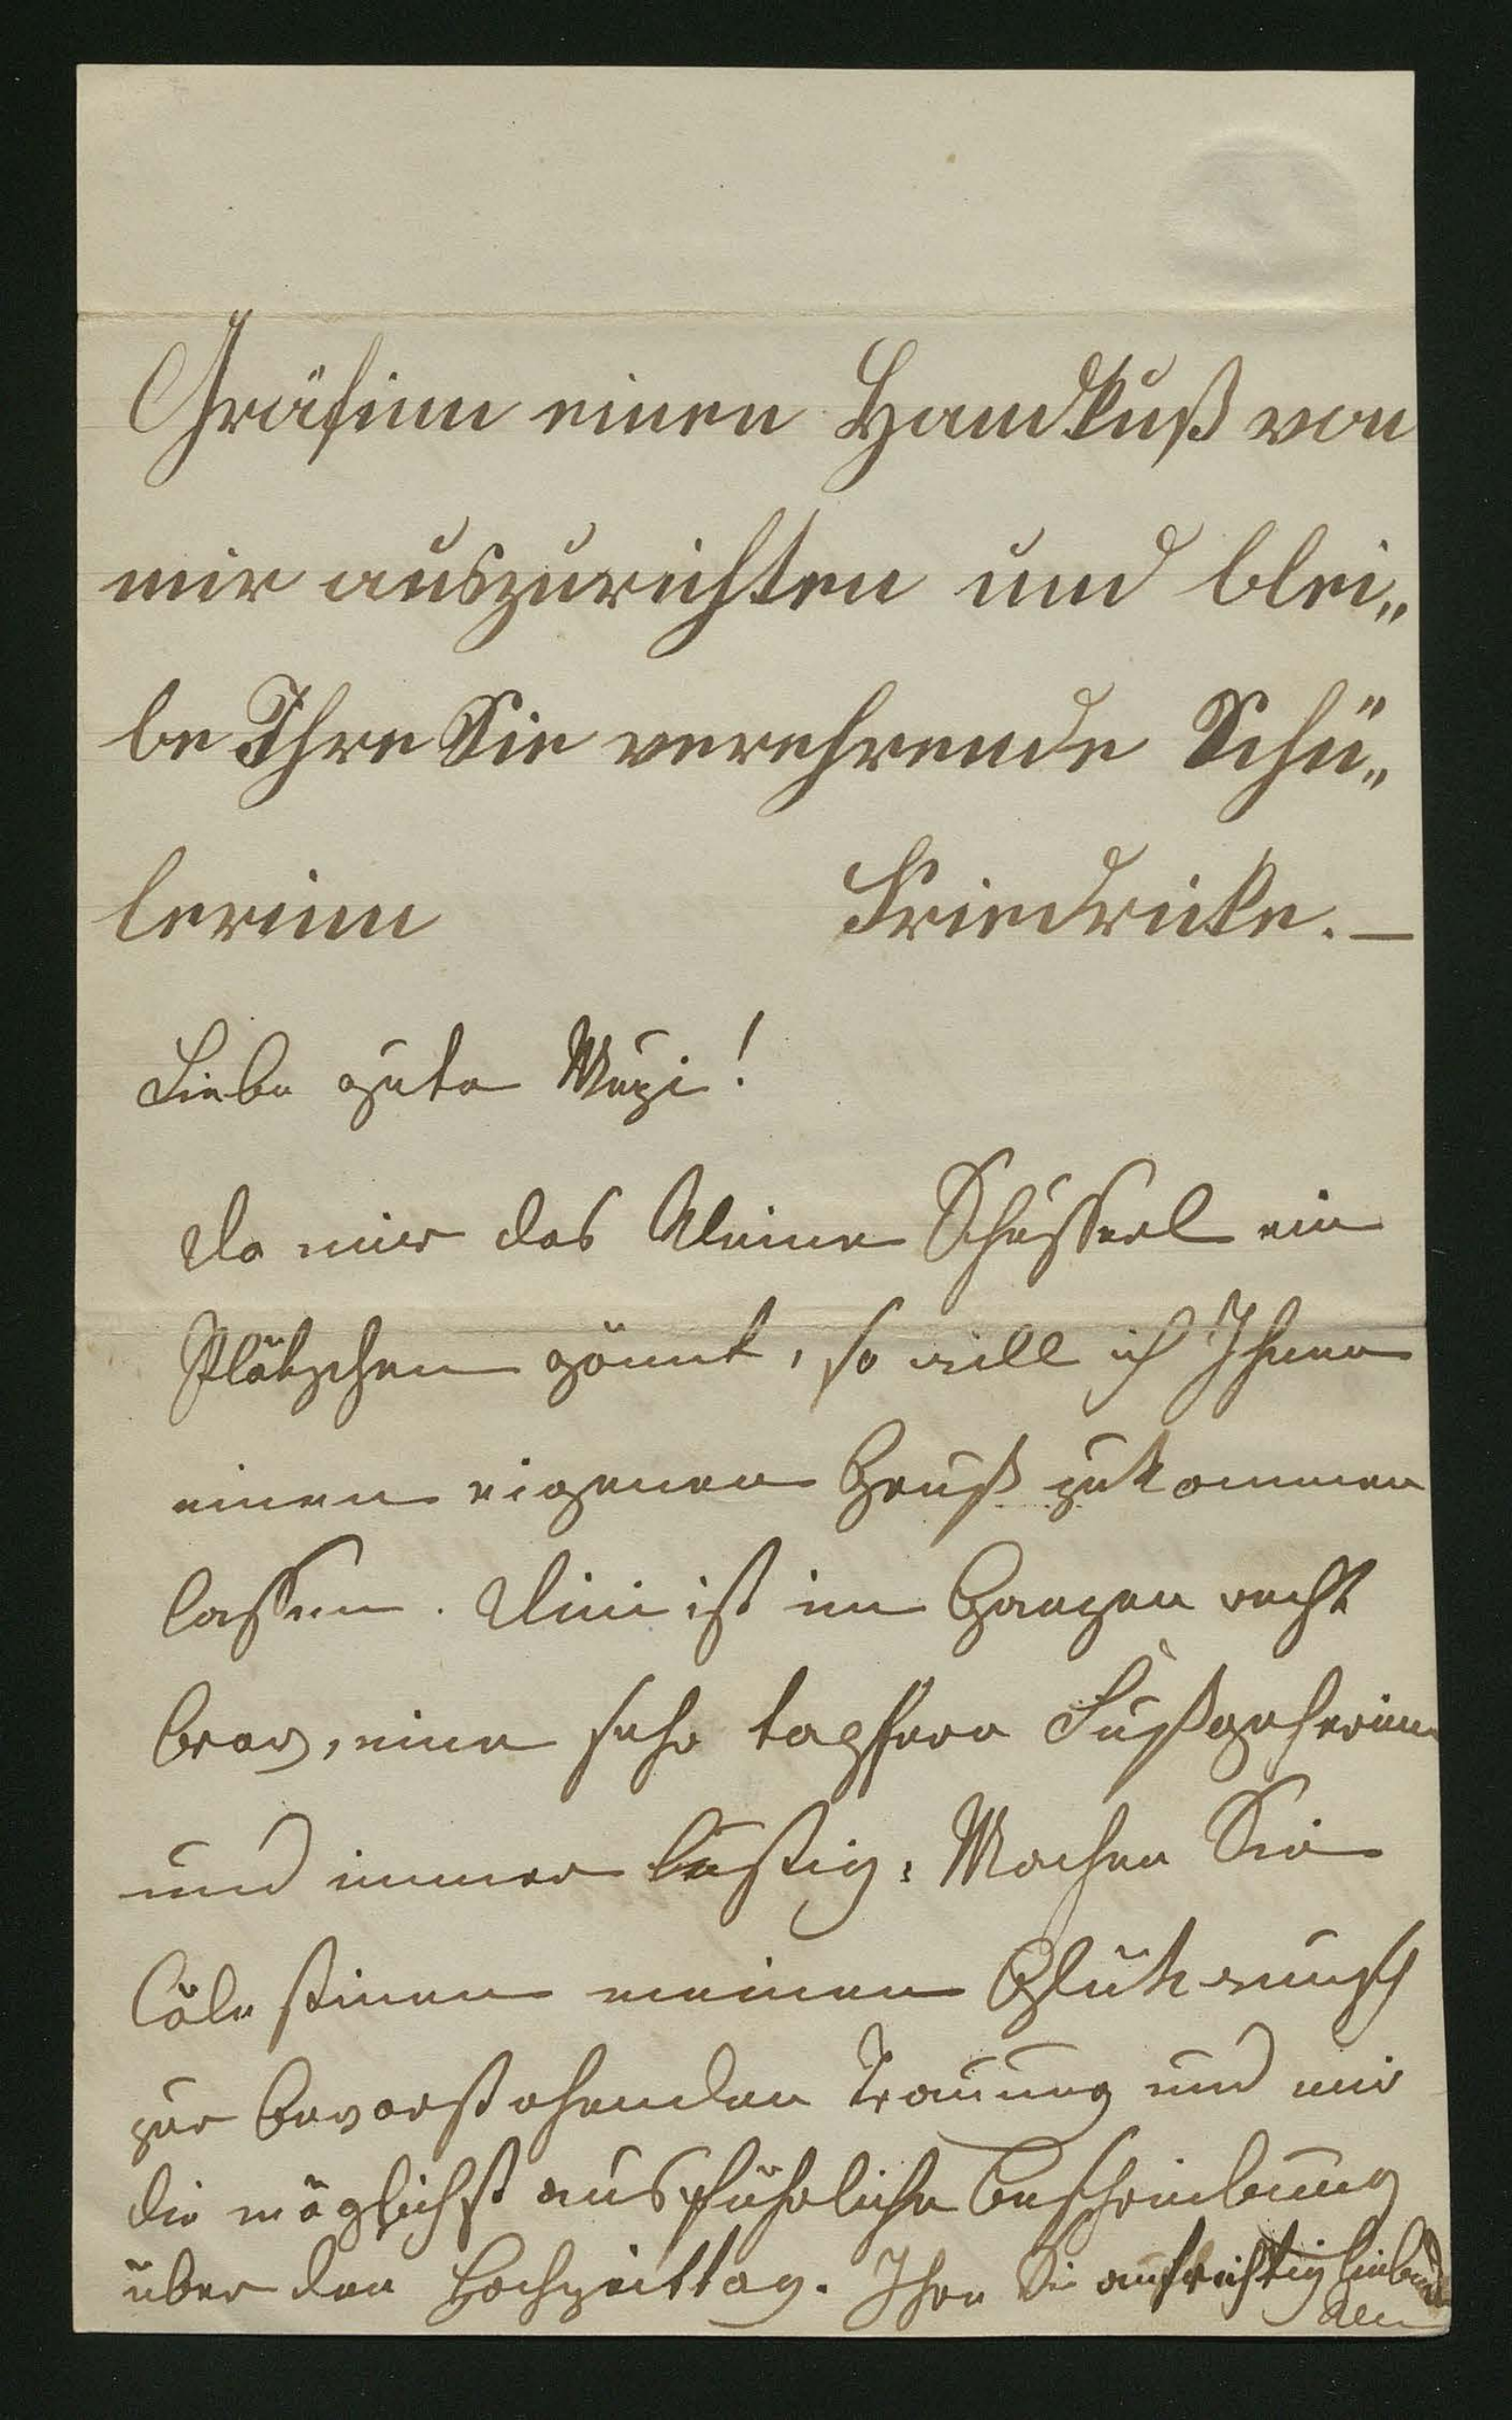 Gräfinn einen Handkuß von
mir auszurichten und blei„
be Ihre Sie verehrende Schü„
lerinn Friedricke. —
Liebe gute Muzi!
Da mir das kleine Schusserl ein
Plätzchen gönnt, so will ich Ihnen
einen eigenen Gruß zukommen
lassen. Mini ist im Ganzen recht
brav, eine sehr tapfere Fußgeherinn
und immer lustig. Machen Sie
Cölestinen meinen Glükwunsch
zur bevorstehenden Trauung und mir
die möglichst ausführliche Beschreibung
über den Hochzeittag. Ihre Sie aufrichtig liebende